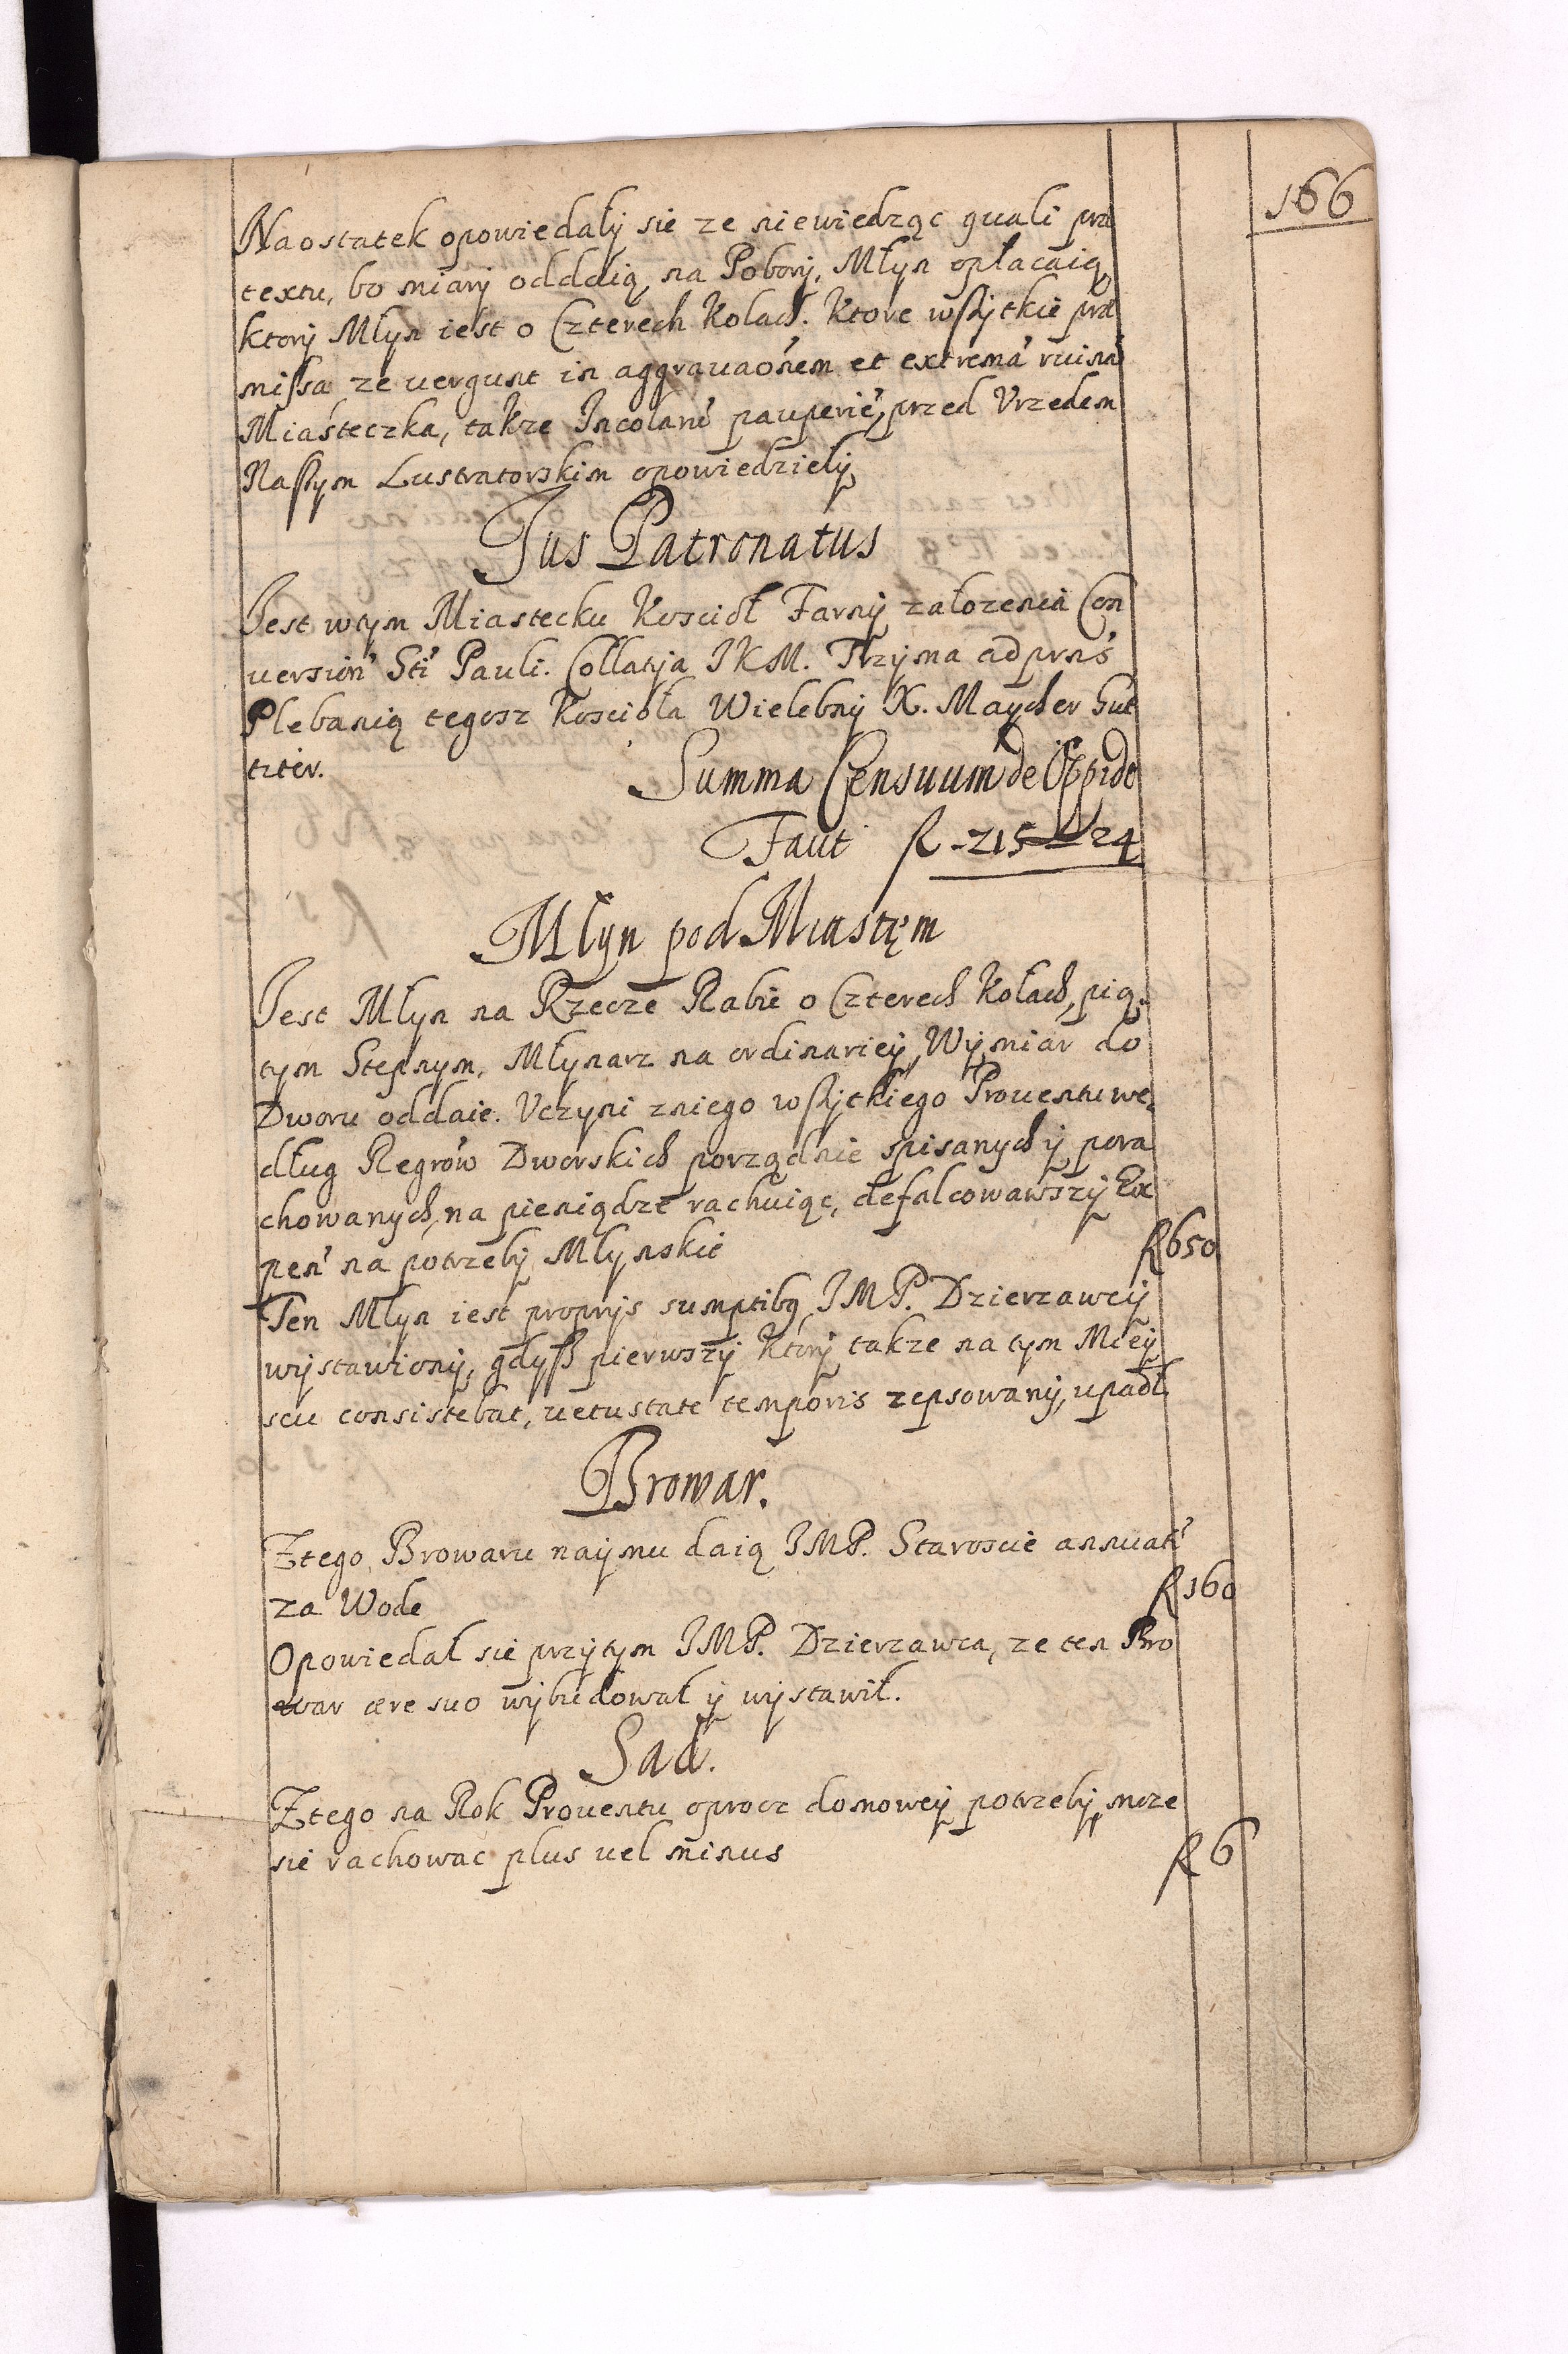 166
Naostatek opowiedalÿ sie ze niewiedząc quali præ
textu, bo miarÿ oddaią, na Poborÿ, Młyn opłacaią,
ktorÿ Młyn iest o Czterech Kolach. Ktore wszÿtkie præ
missa ze uergunt in aggrauaonem et extrema ruina
Miasteczka, takze Incolarũ pauperiẽ, przed Vrzedem
Naszym Lustratorskim opowiedzielÿ
Jus Patronatus
Jest wtym Miastecku Kosciół Farnÿ załozenia Con
uersion' Sti' Pauli. Collatÿa JKM. Trzÿma ad prns
Plebanią tegosz Koscioła Wielebnÿ X. Maÿcher Gut
tzter.
Summa Censuum de Oppido
Faut f -215 - 24
Młyn pod Miastęm
Jest Młyn na Rzecze Rabie o Czterech Kołach, pią
tym Stepnym, Młynarz na ordinarieÿ, Wÿmiar do
Dworu oddaie. Vczyni zniego wszÿtkiego Prouentu we
dług Regrów Dworskich porządnie spisanych ÿ pora
chowanych, na pieniądze rachuiąc, defalcowawszÿ Ex
pen' na potrzebÿ Młynskie
f 650
Ten Młyn iest proprÿs sumptibq JMP. Dzierzawcÿ
wÿstawionÿ, gdysz pierwszÿ ktorÿ takze na tym Mieÿ
scu consistebat, uetustate temporis zepsowanÿ, upadł.
Browar.
Ztego Browaru naÿmu daią JMP. Staroscie annuat'
za Wode
f 160
Opowiedał sie przÿtym JMP. Dzierzawca, ze ten Bro
war ære suo wÿbudował ÿ wÿstawił.
Sad.
Ztego na Rok Prouentu oprocz domoweÿ potrzebÿ moze
sie rachowac plus uel minus
f 6